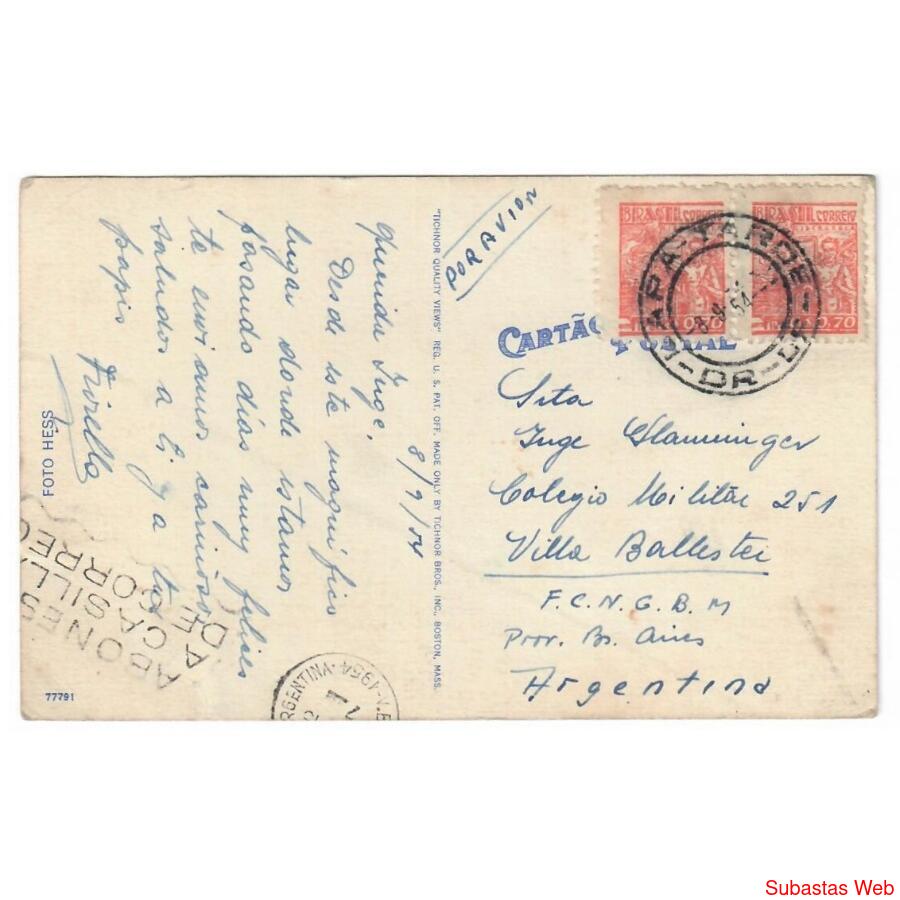 8/9/54
Querida Inge,
Desde este magnifico
lugar donde estamos
pasando dias muy felices
te enviamos cariñosos
saludos a ti y a tus
papis
"TICHNOR QUALITY VIEWS" REG. U. S. PAT. OFF. MADE ONLY BY TICHNOR BROS., INC., BOSTON, MASS.
FOTO HESS
77791
ABONESE
A CASILLA
DE CORREO
ARGENTINA
1954
POR AVION
CARTÃO POSTAL
BRASIL CORREIO
BRASIL CORREIO
0,70
LAPA-TARDE
DR
8-9-54
Srta
Inge
Colegio Militar 251
Villa Ballester
F.C.N.G.B.M
Prov. Bs. Aires
Argentina
Subastas Web